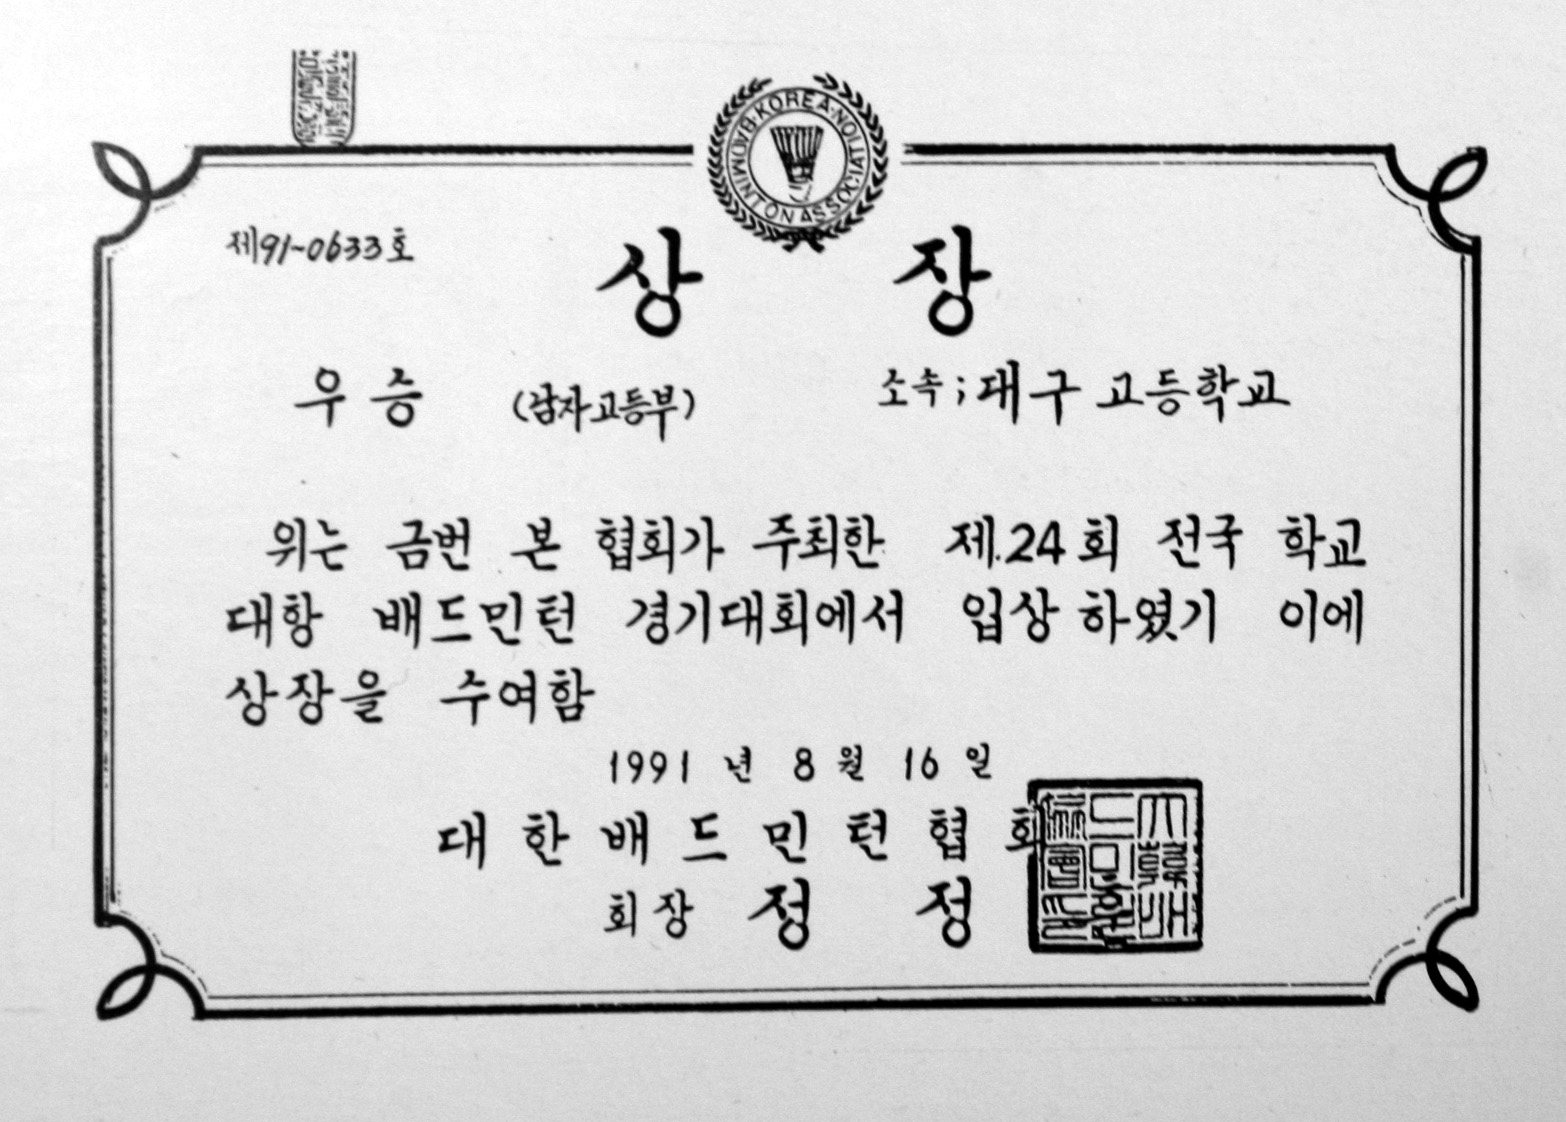 KOREA BADMINTON ASSOCIATION
제91-0633호
상 장
우승 (남자고등부) 소속; 대구 고등학교
위는 금번 본 협회가 주최한 제.24회 전국 학교
대항 배드민턴 경기대회에서 입상 하였기 이에
상장을 수여함
1991 년 8 월 16 일
대한배드민턴협회
회장 정 정